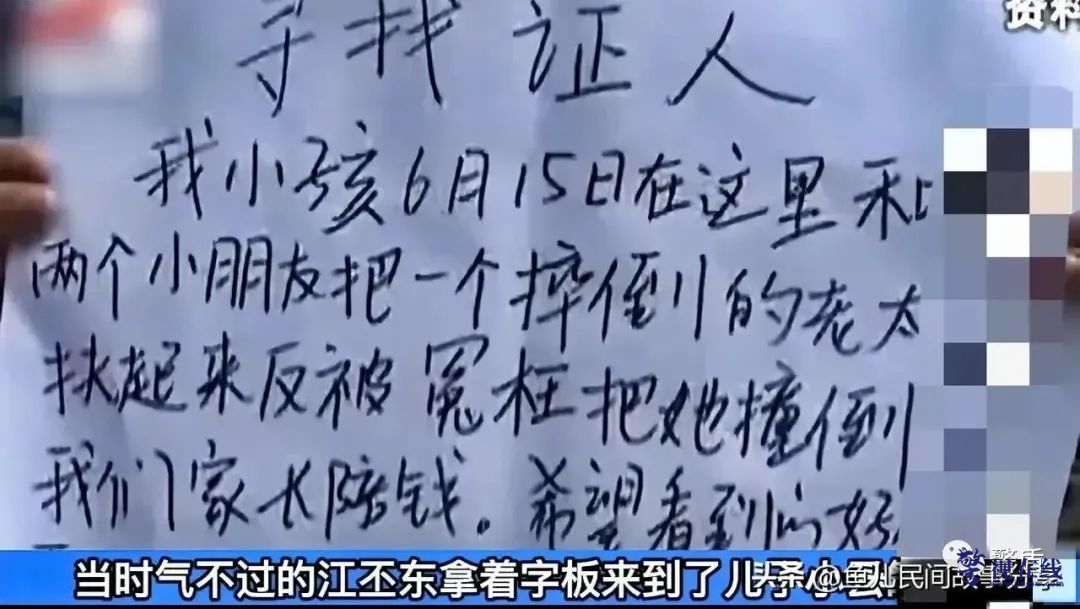 资料
寻找证人
我小孩6月15日在这里和
两个小朋友把一个摔倒的老太
扶起来反被冤枉把她撞倒
我们家长陪钱。希望看到的好
当时气不过的江丕东拿着字板来到了儿子小云
头条@鱼儿民间故事分享
警视在线